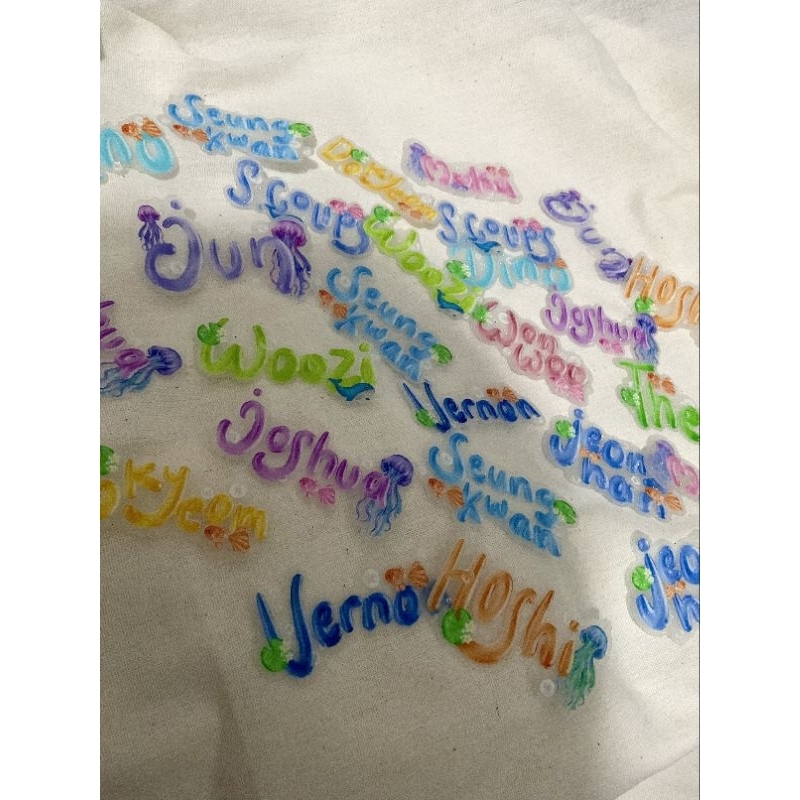 Seung
kwan
no
DoKyeom
Scoups
Scoups
Jun
Jun
Woozi
Dino
Hosh
Seung
kwan
Joshua
Won
Woo
ua
Woozi
The
Vernon
Joshua
Jeon
han
Seung
kwan
Kyeom
Jeo
h
Verno
Hoshi